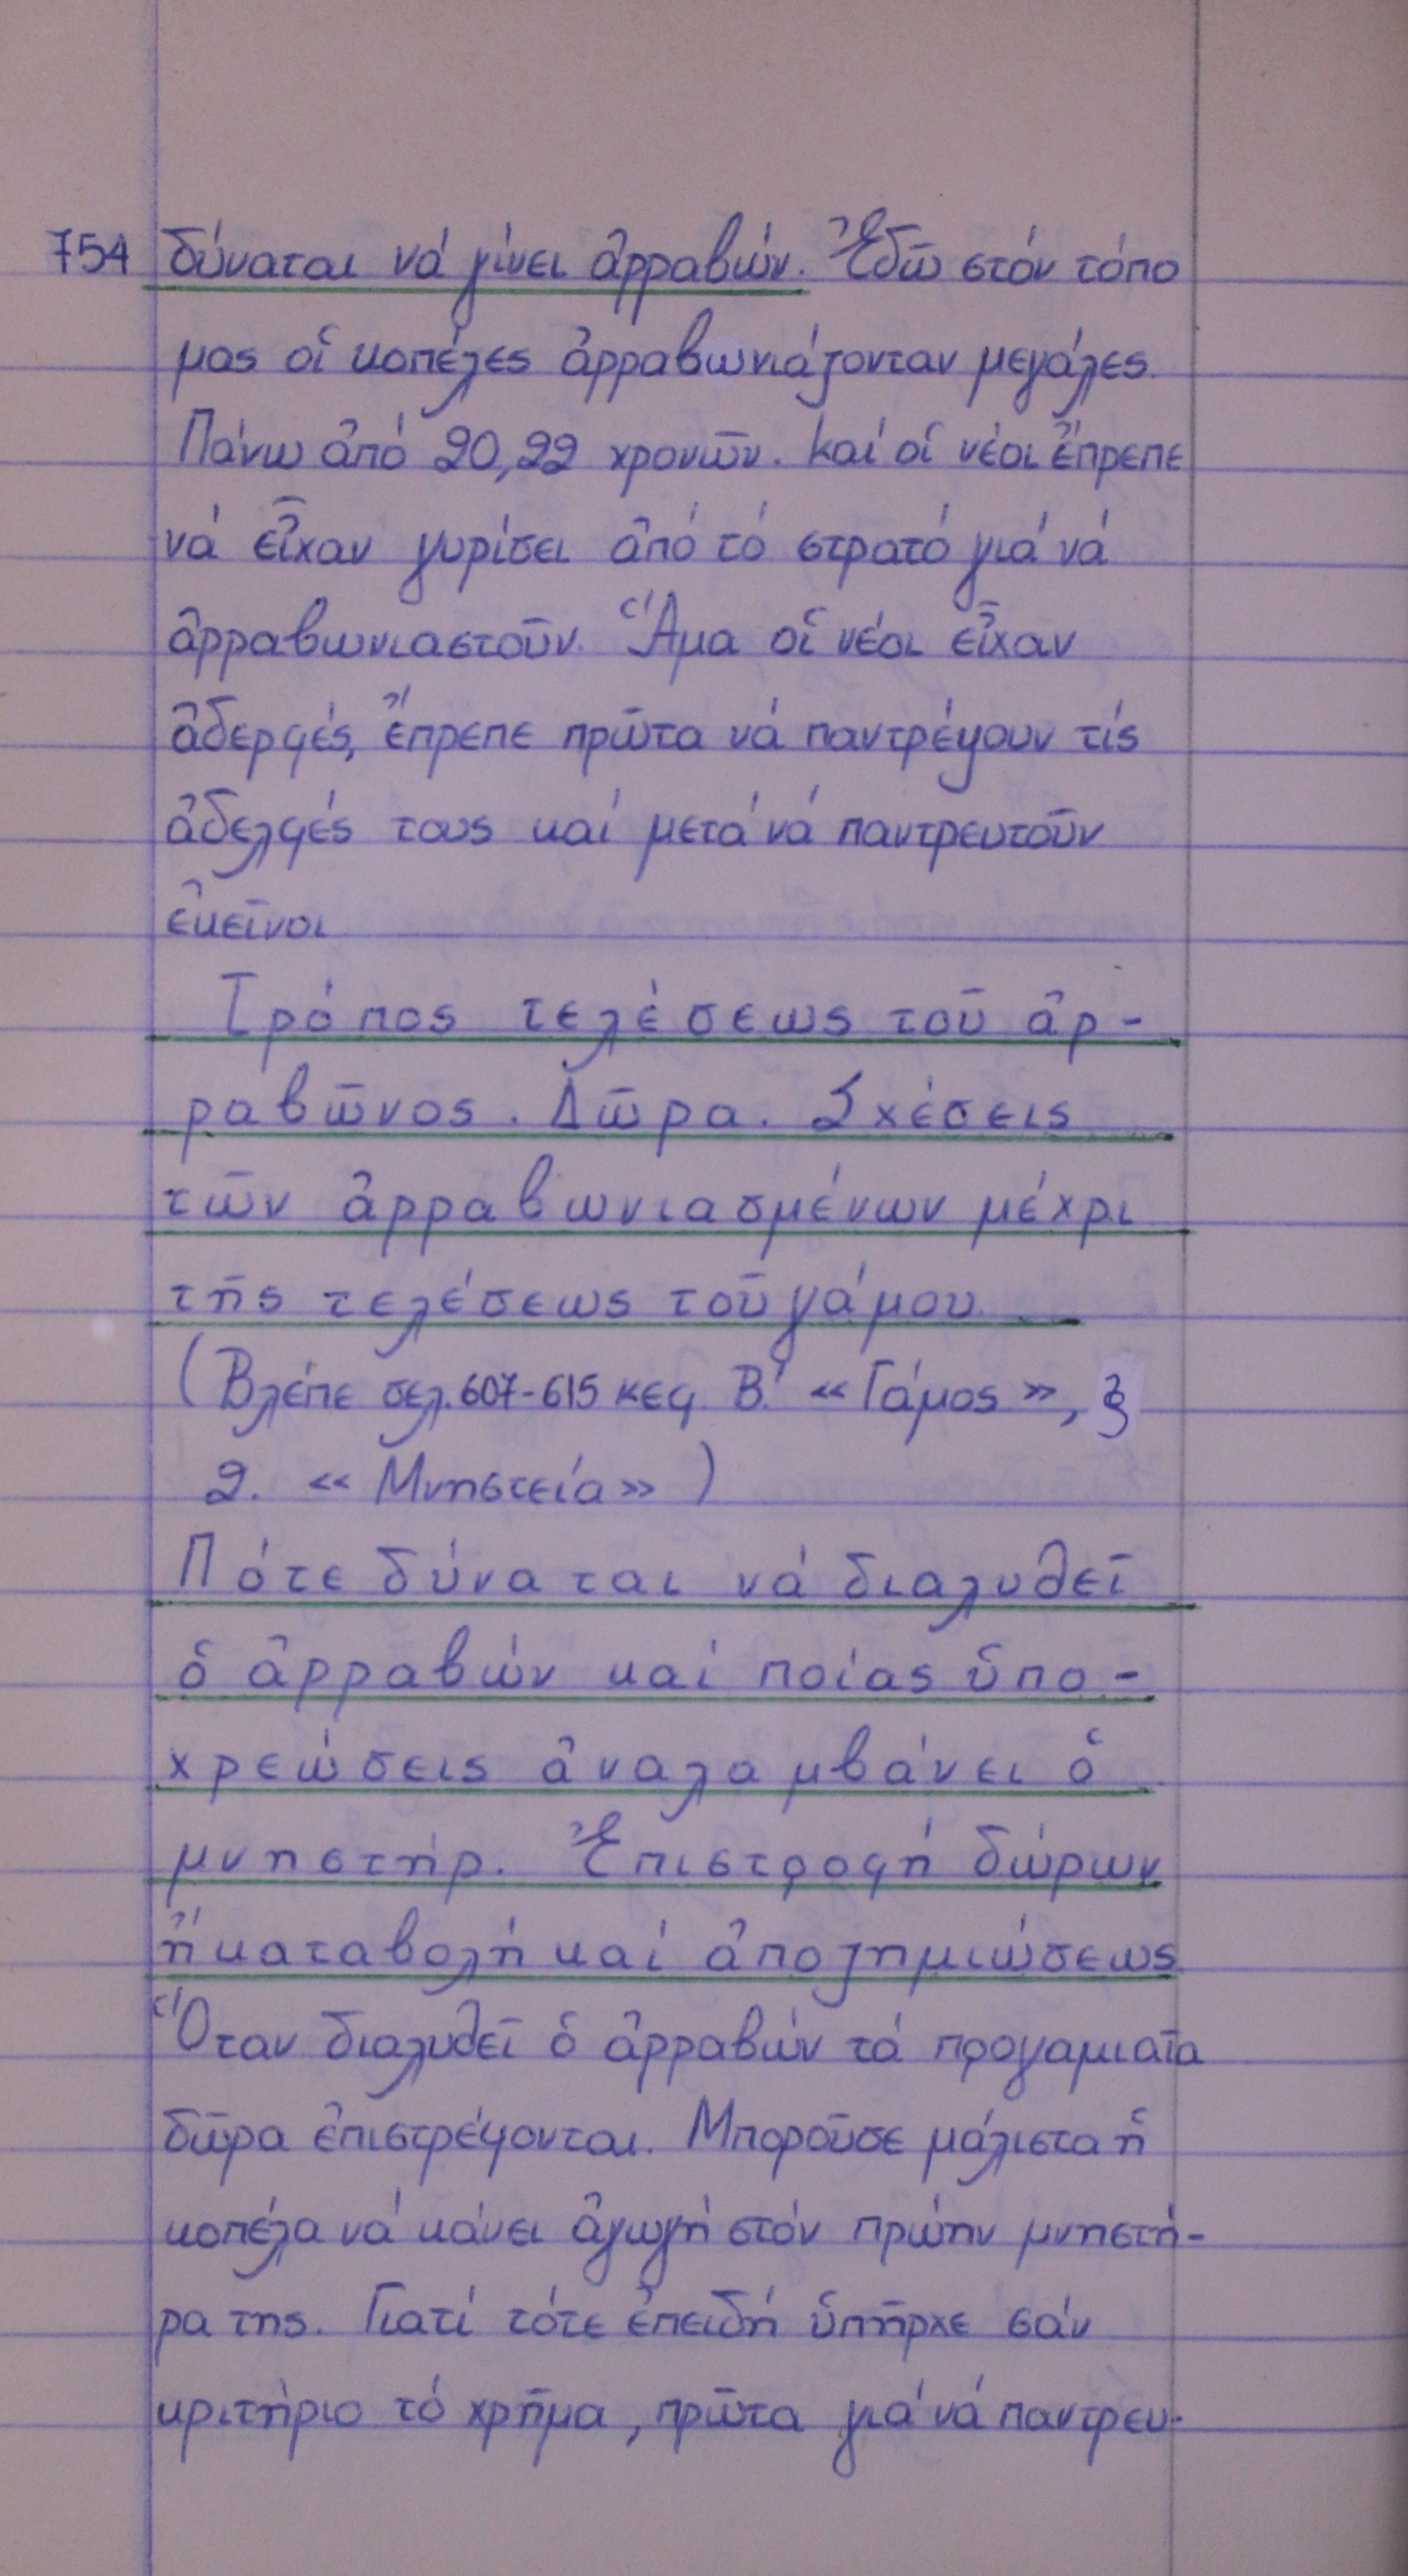 754 δύναται νά γίνει ἀρραβών. Ἐδῶ στόν τόπο
μας οἱ κοπέλες ἀρραβωνιάζονταν μεγάλες.
Πάνω ἀπό 20,22 χρονῶν. Καί οἱ νέοι ἔπρεπε
νά εἶχαν γυρίσει ἀπό τό στρατό γιά νά
ἀρραβωνιαστοῦν. Ἅμα οἱ νέοι εἶχαν
ἀδερφές, ἔπρεπε πρῶτα νά παντρέψουν τίς
ἀδελφές τους καί μετά νά παντρευτοῦν
ἐκεῖνοι
Τρόπος τελέσεως τοῦ ἀρ-
ραβῶνος. Δῶρα. Σχέσεις
τῶν ἀρραβωνιασμένων μέχρι
τῆς τελέσεως τοῦ γάμου
(Βλέπε σελ. 607-615 κεφ. Β΄. «Γάμος», §
2. «Μνηστεία»)
Πότε δύναται νά διαλυθεῖ
ὁ ἀρραβών καί ποίας ὑπο-
χρεώσεις ἀναλαμβάνει ὁ
μνηστήρ. Ἐπιστροφή δώρων
ἤ καταβολή καί ἀποζημιώσεως
Ὅταν διαλυθεῖ ὁ ἀρραβών τά προγαμιαῖα
δῶρα ἐπιστρέφονται. Μποροῦσε μάλιστα ἡ
κοπέλα νά κάνει ἀγωγή στόν πρώην μνηστή-
ρα της. Γιατί τότε ἐπειδή ὑπῆρχε σάν
κριτήριο τό χρῆμα, πρῶτα γιά νά παντρευ-